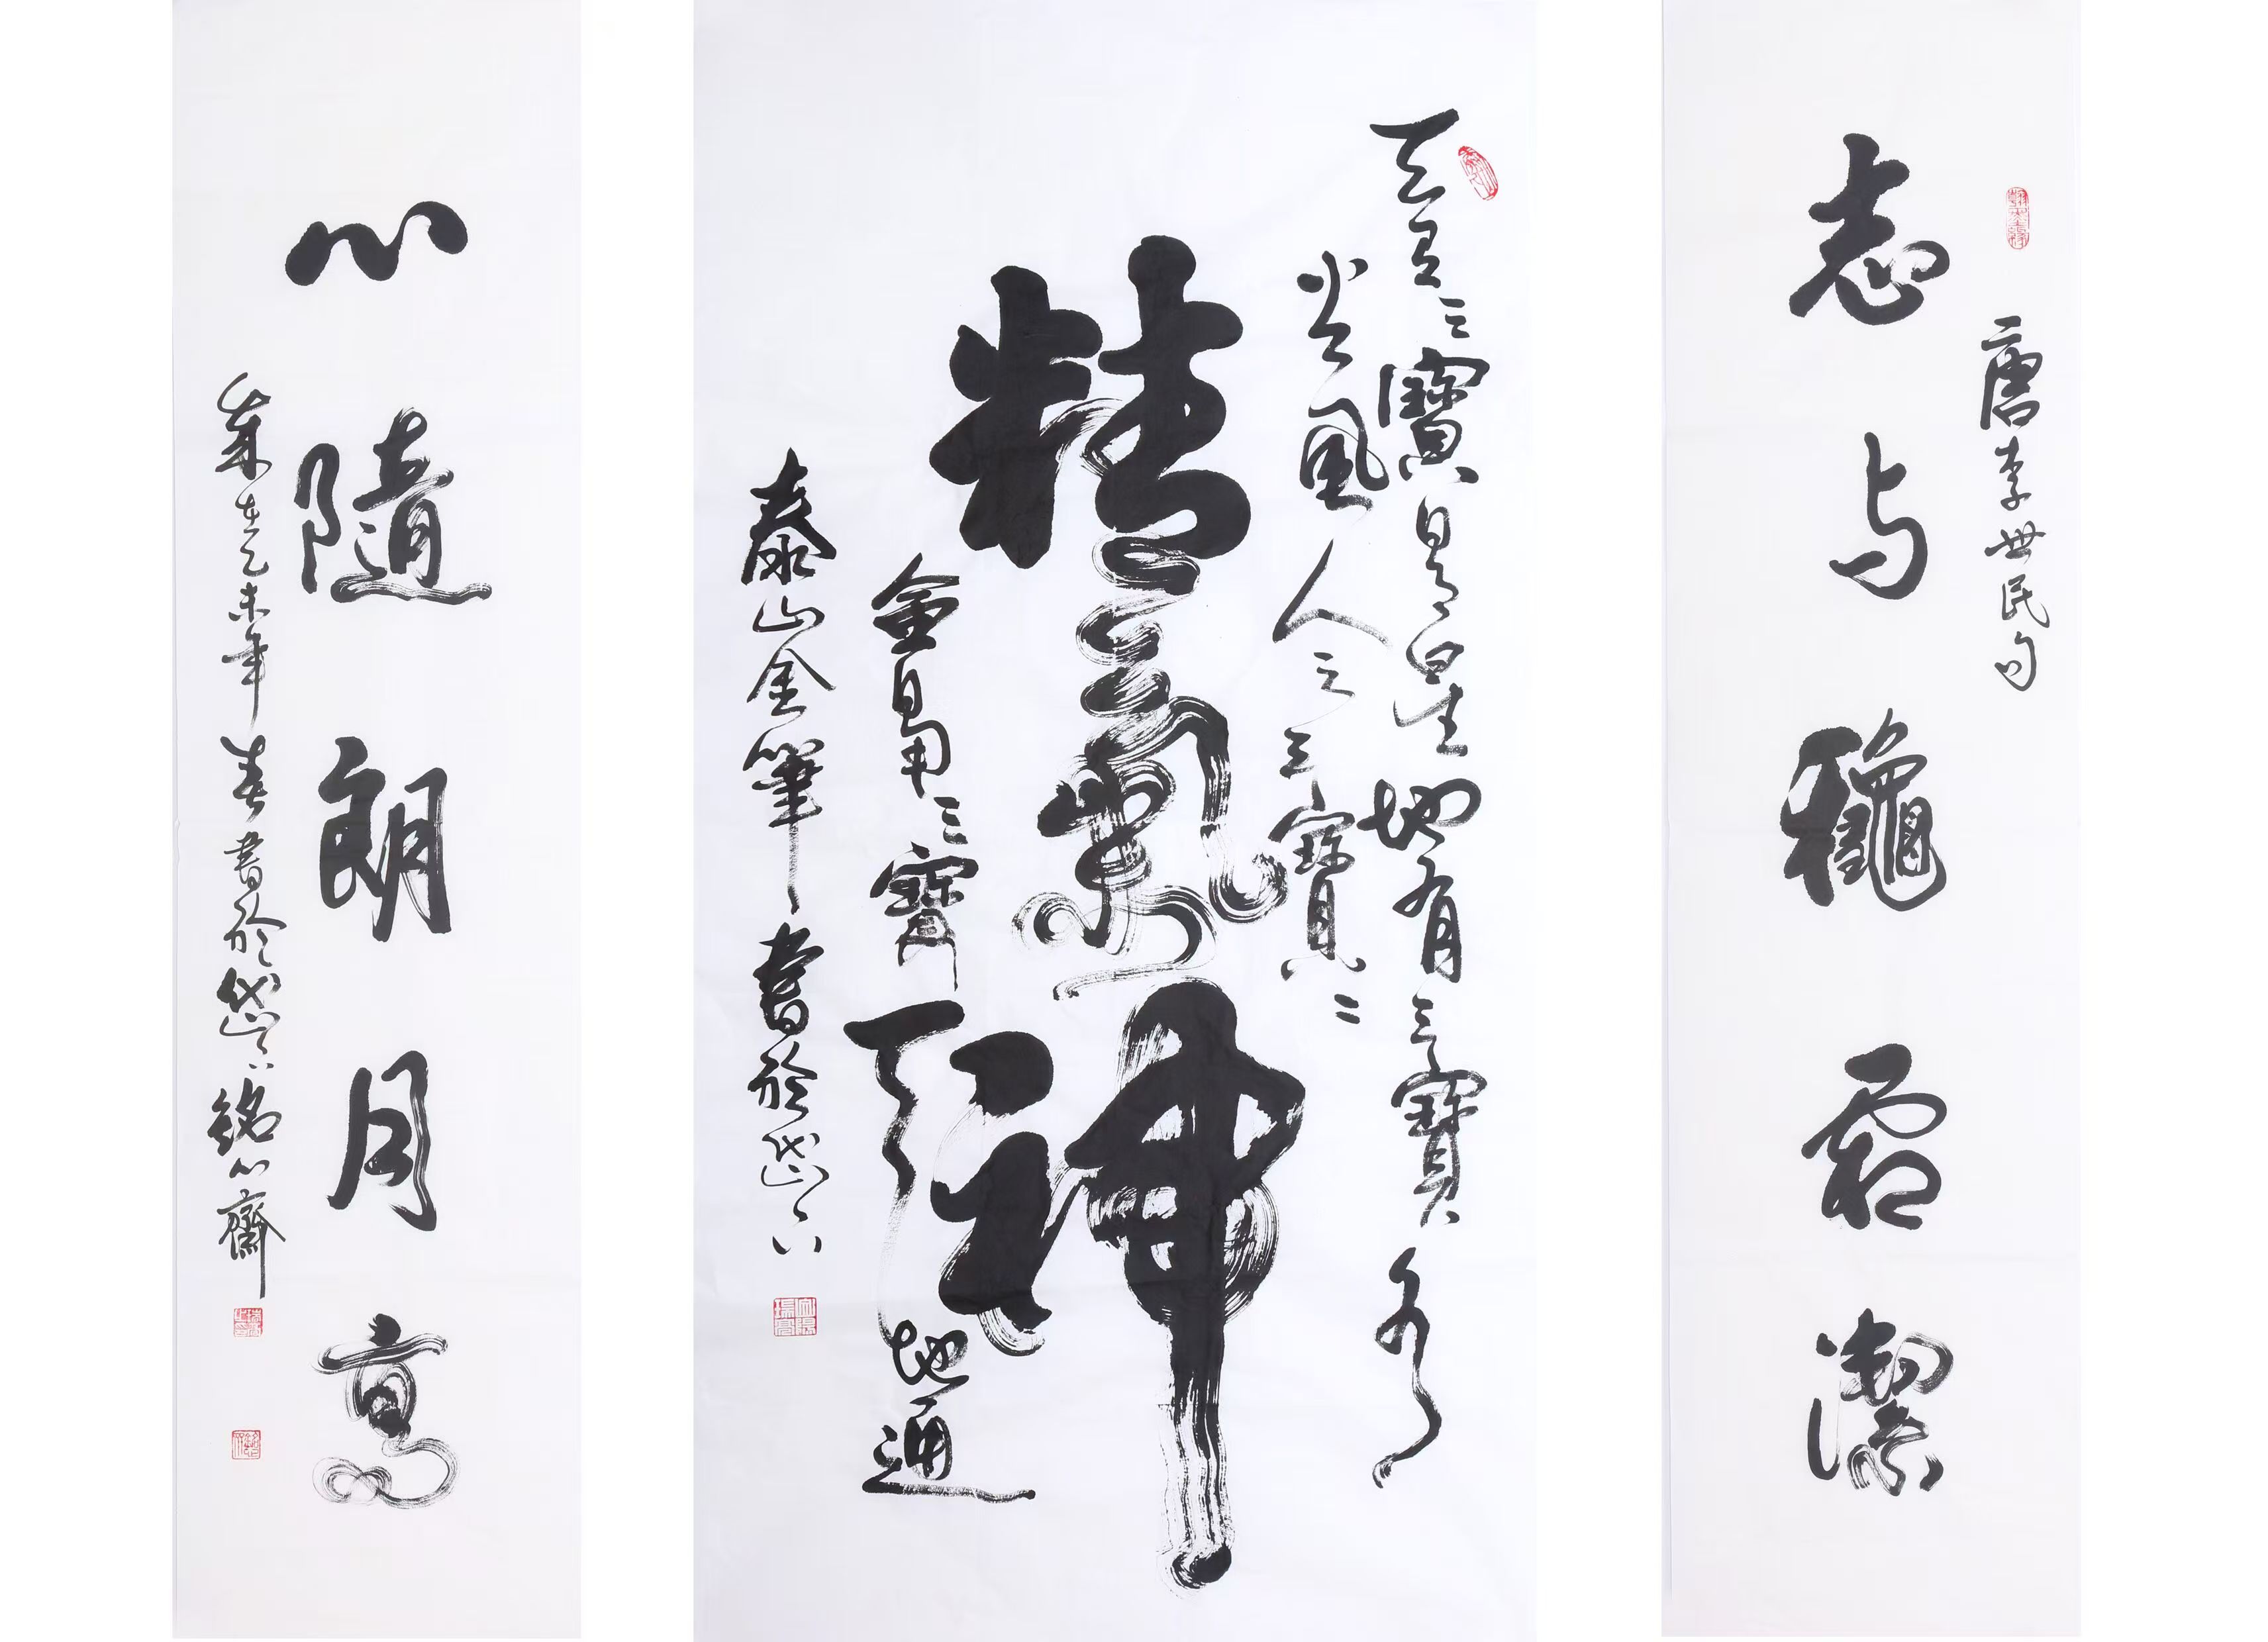 唐李世民句
志与龝霜潔
天有三寶日月星地有三寶水
火風人之三寶二
精氣神
會用三寶天地通
泰山金筆書於岱下
心隨朗月高
歲在乙未年春書於岱下銘心齋